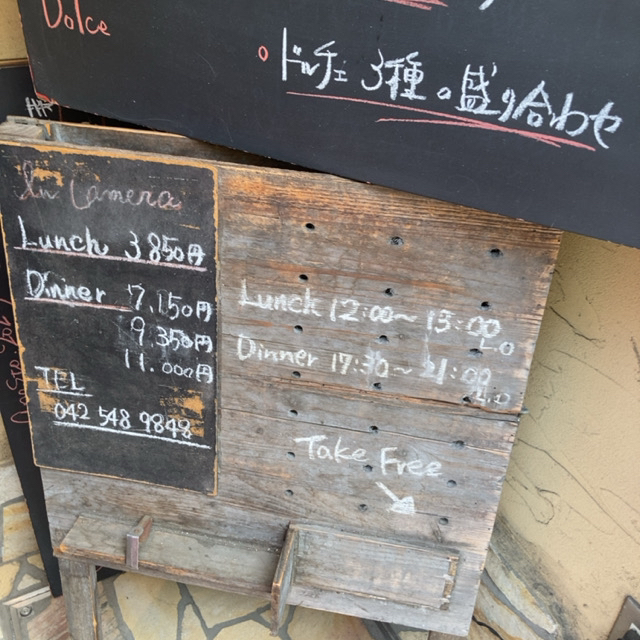 Dolce
ドルチェ 3種の盛り合わせ
Camera
Lunch 3,850円
Dinner 7,150円
9,350円
11,000円
TEL
042 548 9848
Lunch 12:00～15:00
LO
Dinner 17:30～21:00
LO
Take Free